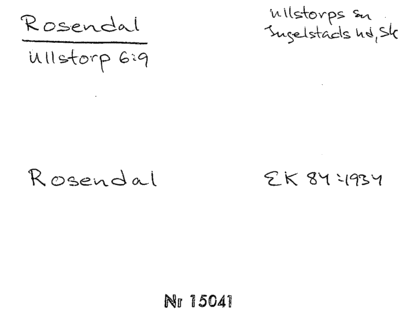 Rosendal
Ullstorp 6:9
Ullstorps sn
Ingelstads hd, Sk
Rosendal
EK 84:1934
Nr 15041